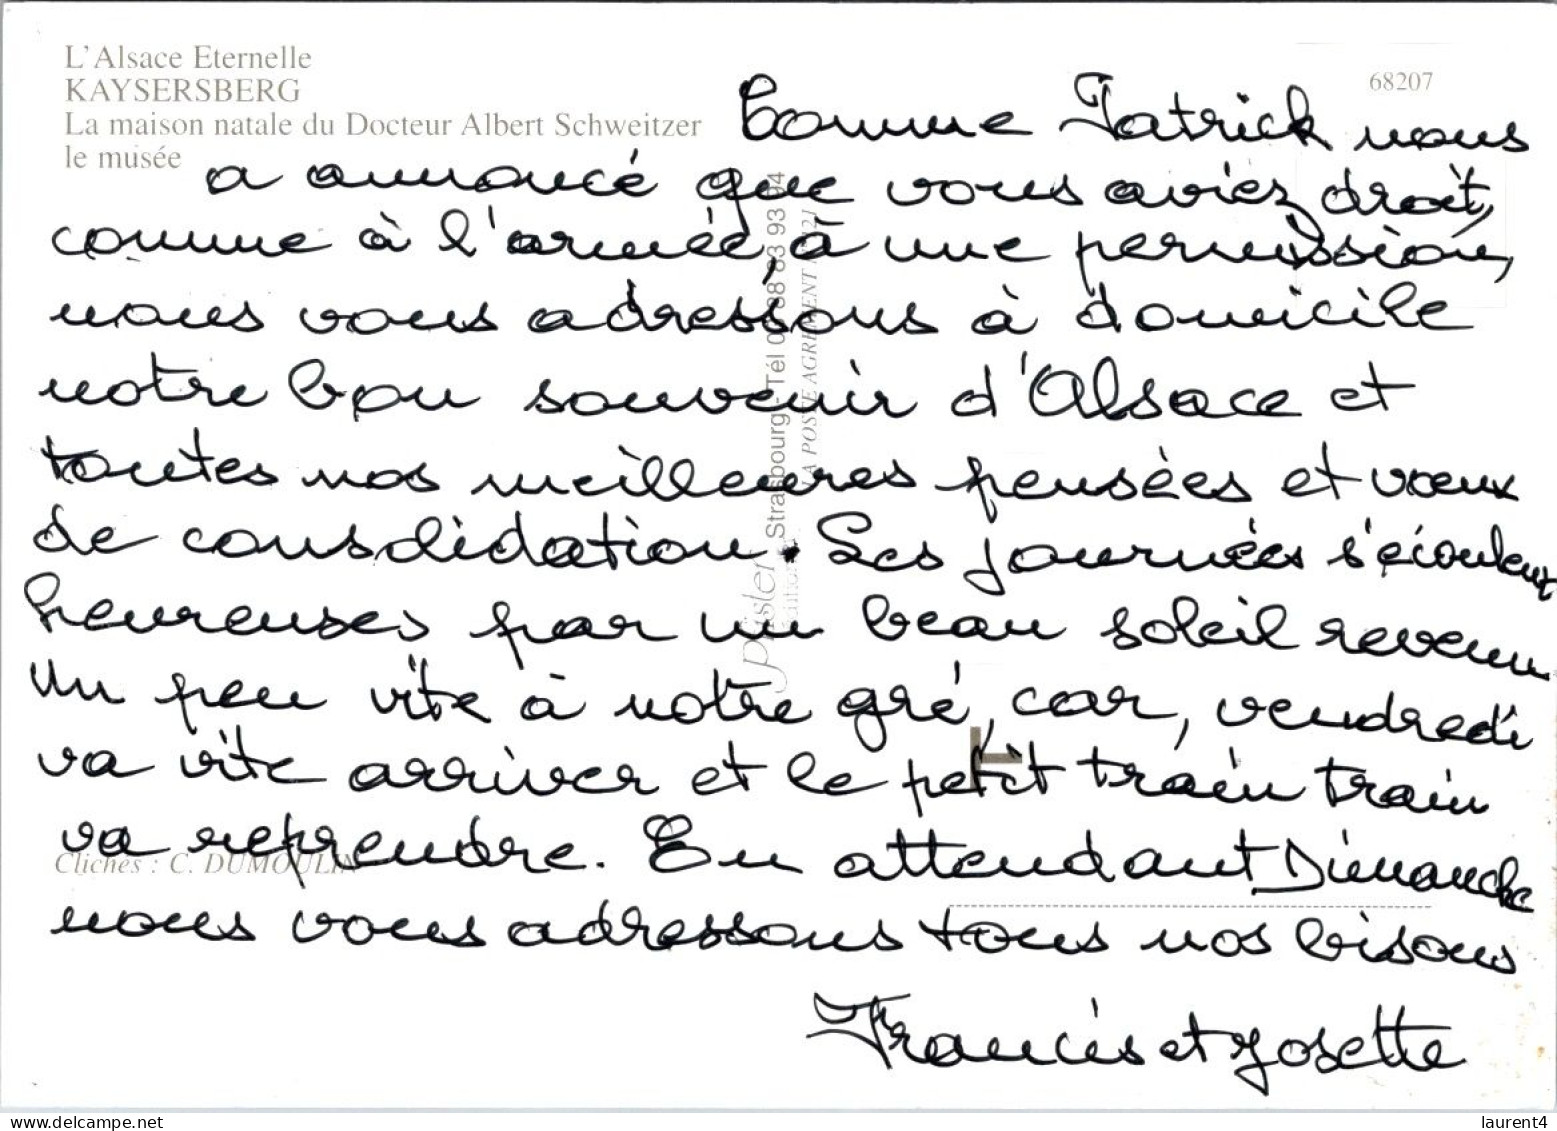 L'Alsace Eternelle
KAYSERSBERG
La maison natale du Docteur Albert Schweitzer
le musée
68207
Comme Patrick nous
a annoncé que vous aviez droit,
comme à l'armée, à une permission,
nous vous adressons à domicile
notre bon souvenir d'Alsace et
toutes nos meilleures pensées et vœux
de consolidation. Les journées s'écoulent
heureuses par un beau soleil revenu
un peu vite à notre gré, car, vendredi
va vite arriver et le petit train train
va reprendre. En attendant Dimanche
nous vous adressons tous nos bisous
Francis et Josette
Clichés : C. DUMOULIN
pfister Strasbourg - Tél 0 88 83 93 94
LA POSTE AGREMENT 21
laurent4